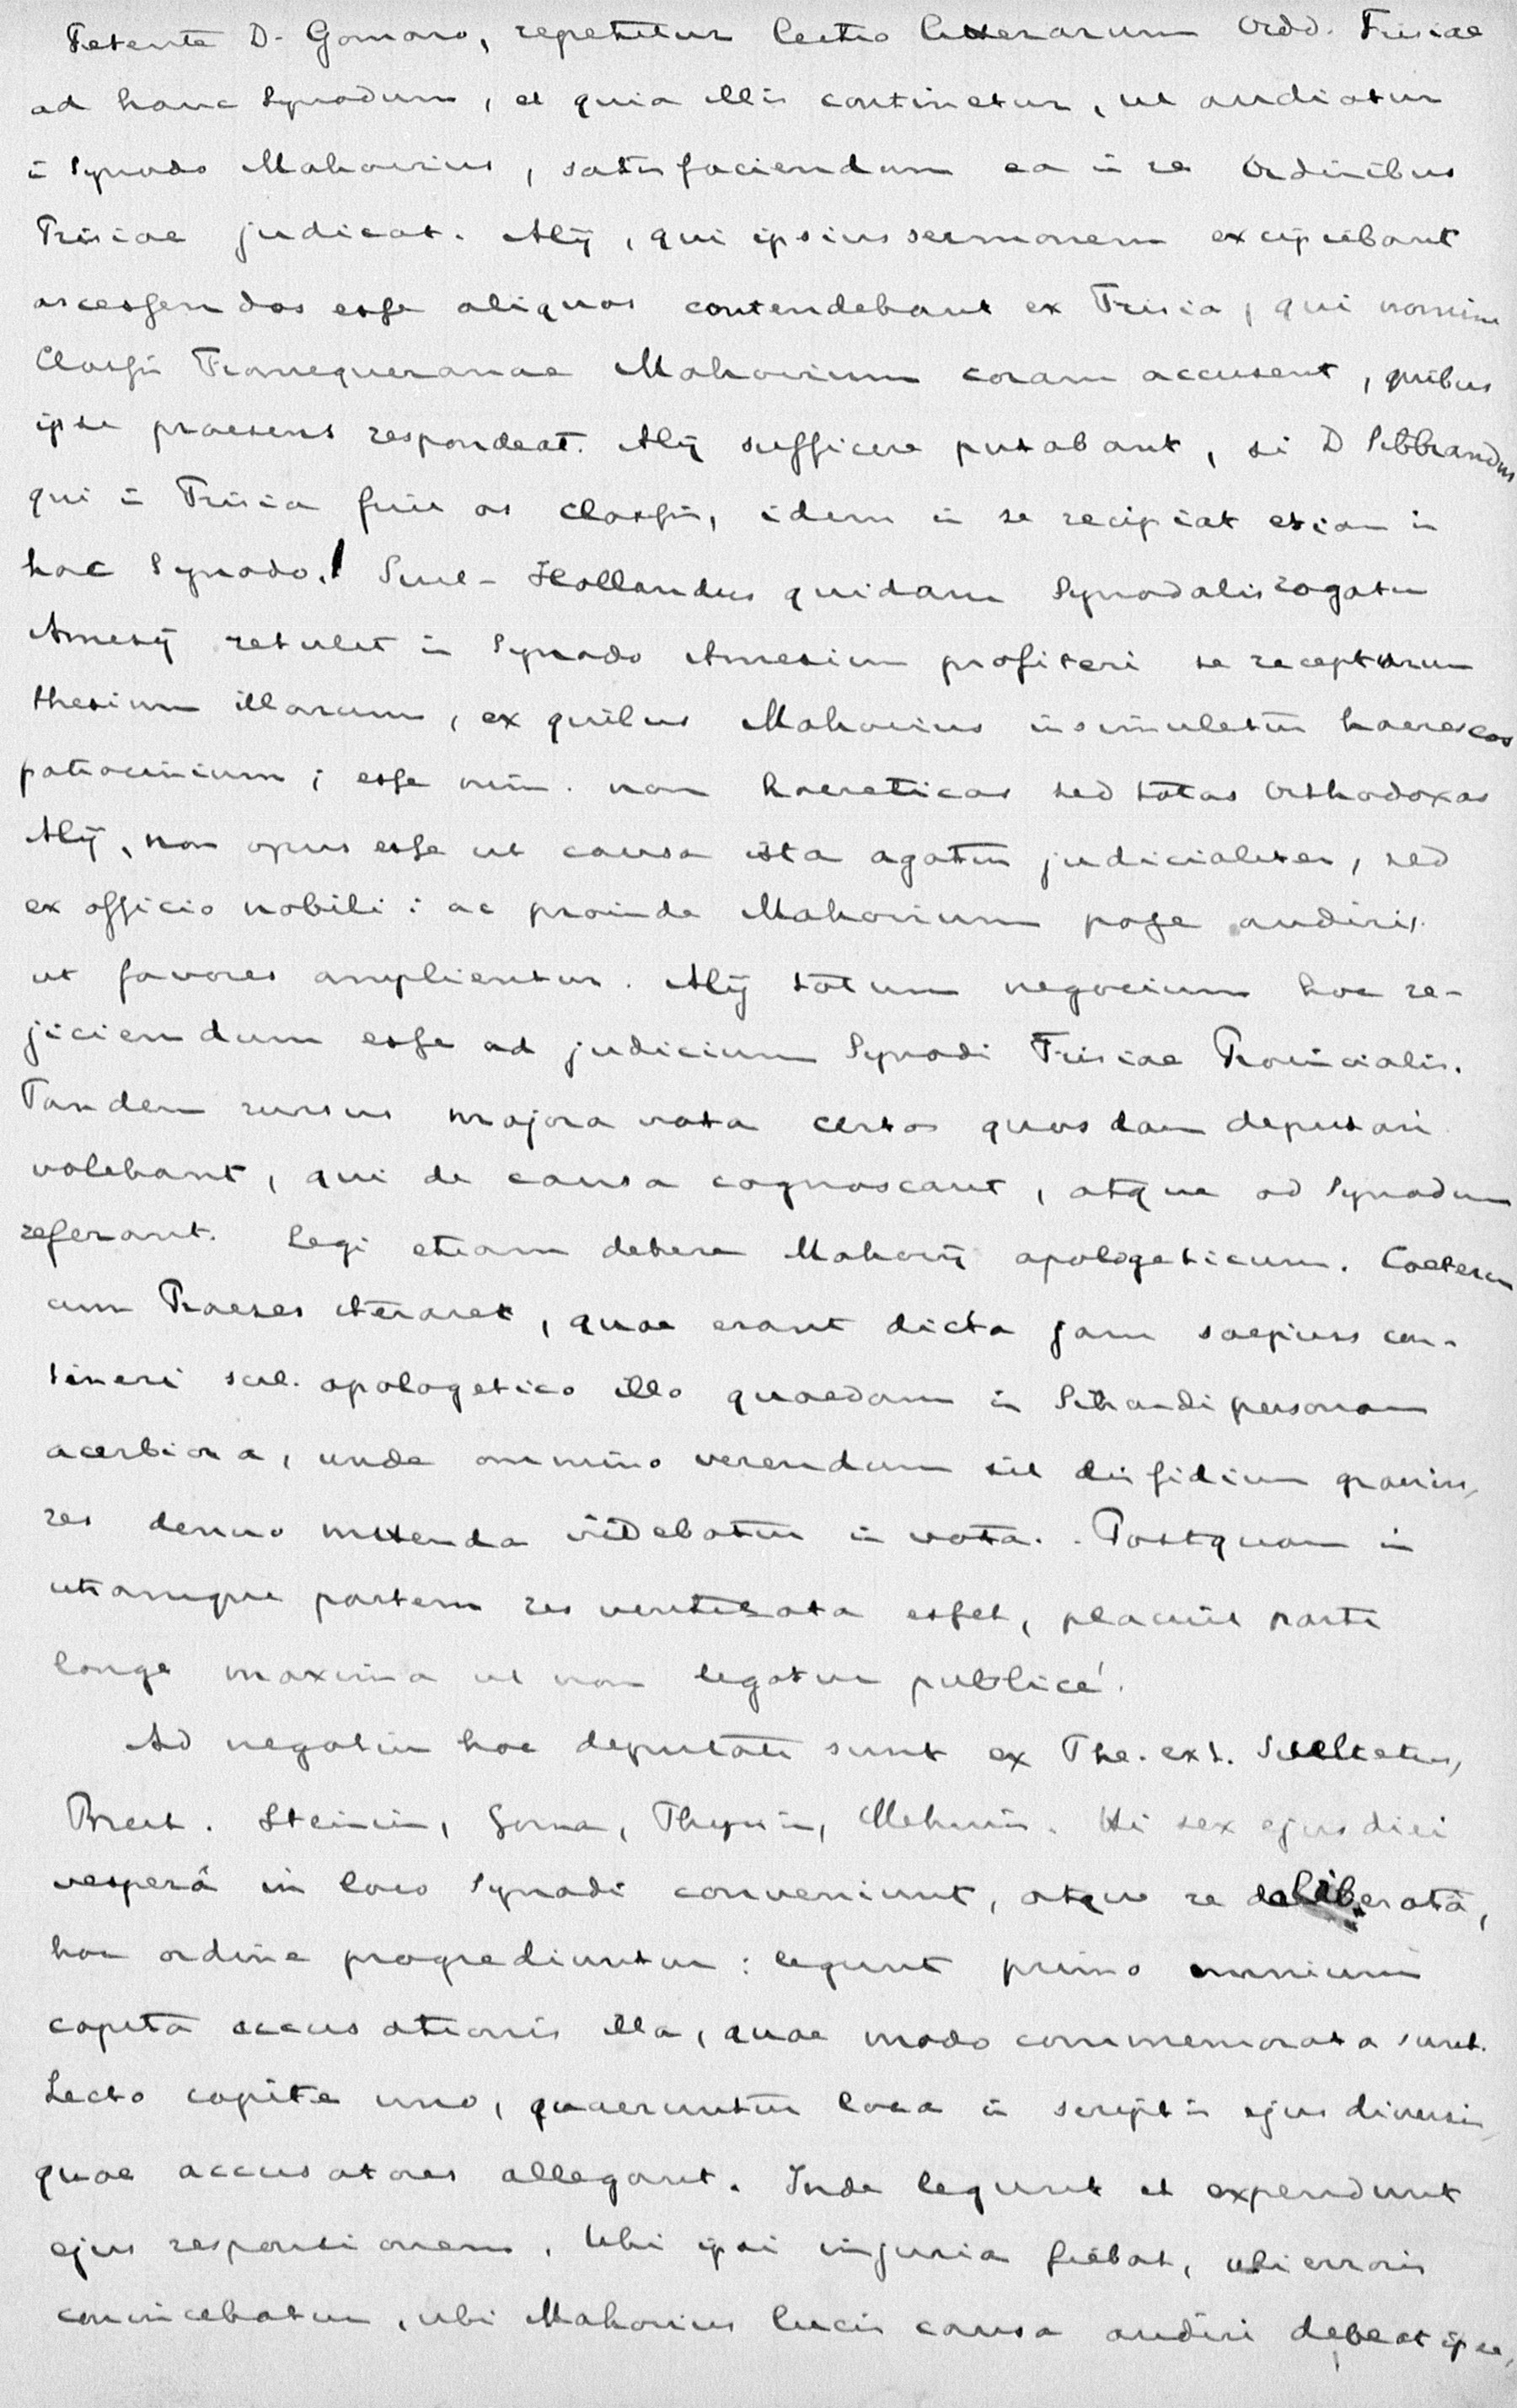 Petente D. Gomaro, repetitur lectio litterarum Ordd. Frisiae
ad hanc Synodum, et quia illis continetur, ut audiatur
in Synodo Makovius, satisfaciendum ea in re Ordinibus
Frisiae judicat. Alij, qui ipsius sermonem excipiebant
arcessendos esse aliquos contendebant ex Frisia, qui nomine
Classis Franequeranae Makovium coram accusent, quibus
ipse praesens respondeat. Alij sufficere putabant, si D Sibbrandus
qui in Frisia fuit os classis, idem in se recipiat etiam in
hac Synodo. Suut-Hollandus quidam Synodalis rogatu
Amesij retulit in Synodo Amesium profiteri se recepturum
thesium illarum, ex quibus Makovius insimuletur haereseos
patrocinium; esse nim. non haereticas sed totas Orthodoxas
Alij, non opus esse ut causa ista agatur judicialiter, sed
ex officio nobili: ac proinde Makovium posse audiri,
ut favores amplientur. Alij totum negocium hoc re-
jiciendum esse ad judicium Synodi Frisiae Provincialis.
Tandem rursus majora vota certos quosdam deputari
volebant, qui de causa cognoscant, atque ad Synodum
referant. Legi etiam debere Makovij apologeticum. Caeterum
cum Praeses iteraret, quae erant dicta jam saepius con-
tineri scil. apologetico illo quaedam in Sibrandi personam
acerbiora, unde omnino verendum sit dissidium gravius,
res denuo mittenda videbatur in vota. Postquam in
utramque partem res ventilata esset, placuit parti
longe maxima ut non legatur publicè.
Ad negotium hoc deputati sunt ex The. ext. Scultetus,
Breit. Steinius, Goma, Thysius, Mehnius. Hi sex ejus diei
vesperâ in loco Synodi conveniunt, atque re deliberatâ,
hoc ordine progrediuntur: legunt primo omnium
capita accusationis illa, quae modo commemorata sunt.
Lecto capite uno, quaeruntur loca in scriptis ejus diversis,
quae accusatores allegant. Inde legunt et expendunt
ejus responsionem. Ubi ipsi injuria fiebat, ubi erroris
convincebatur, ubi Makovius lucis causa audiri debeat ipse,